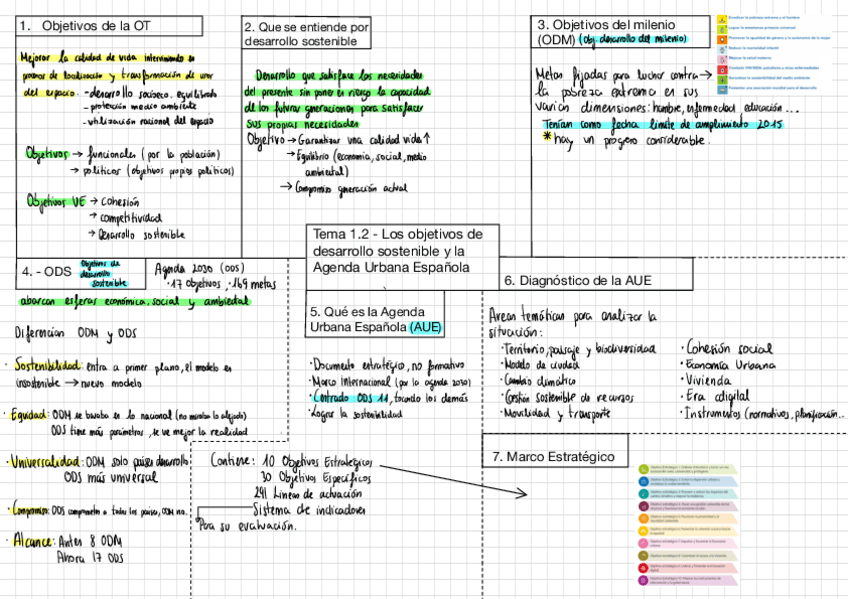 1. Objetivos de la OT
Mejorar la calidad de vida interviniendo en
procesos de localización y transformación de usos
del espacio: - desarrollo socioeco. equilibrado
- protección medio ambiente
- utilización racional del espacio
Objetivos → funcionales (por la población)
→ políticos (objetivos propios políticos)
Objetivos UE → Cohesión
→ competitividad
→ Desarrollo sostenible
2. Que se entiende por
desarrollo sostenible
Desarrollo que satisface las necesidades
del presente sin poner en riesgo la capacidad
de las futuras generaciones para satisfacer
sus propias necesidades
Objetivo → Garantizar una calidad vida ↑
→ Equilibrio (economía, social, medio
ambiental)
→ Compromiso generación actual
3. Objetivos del milenio
(ODM) (obj. desarrollo del milenio)
Metas fijadas para luchar contra →
la pobreza extrema en sus
varias dimensiones: hambre, enfermedad, educación...
Tenían como fecha límite de cumplimiento 2015
* hay un progreso considerable.
Erradicar la pobreza extrema y el hambre
Lograr la enseñanza primaria universal
Promover la igualdad de género y la autonomía de la mujer
Reducir la mortalidad infantil
Mejorar la salud materna
Combatir VIH/SIDA, paludismo y otras enfermedades
Garantizar la sostenibilidad del medio ambiente
Fomentar una asociación mundial para el desarrollo
Tema 1.2 - Los objetivos de
desarrollo sostenible y la
Agenda Urbana Española
4. - ODS
Objetivos de
desarrollo
sostenible
Agenda 2030 (ODS)
· 17 objetivos, · 169 metas
abarcan esferas económica, social y ambiental
Diferencian ODM y ODS
· Sostenibilidad: entra a primer plano, el modelo es
insostenible → nuevo modelo
· Equidad: ODM se basaba en lo nacional (no miraba lo alejado)
ODS tiene más parámetros, se ve mejor la realidad
· Universalidad: ODM solo países desarrollo
ODS más universal
· Compromiso: ODS comprometen a todos los países, ODM no.
· Alcance: Antes 8 ODM
Ahora 17 ODS
5. Qué es la Agenda
Urbana Española (AUE)
· Documento estratégico, no formativo
· Marco Internacional (por la agenda 2030)
· Centrado ODS 11, tocando los demás
· Lograr la sostenibilidad
Contiene: 10 Objetivos Estratégicos
30 Objetivos Específicos
291 Lineas de actuación
Sistema de indicadores
Para su evaluación.
6. Diagnóstico de la AUE
Areas temáticas para analizar la
situación:
· Territorio, paisaje y biodiversidad
· Modelo de ciudad
· Cambio climático
· Gestión sostenible de recursos
· Movilidad y transporte
· Cohesión social
· Economía Urbana
· Vivienda
· Era digital
· Instrumentos (normativos, planificación...
7. Marco Estratégico